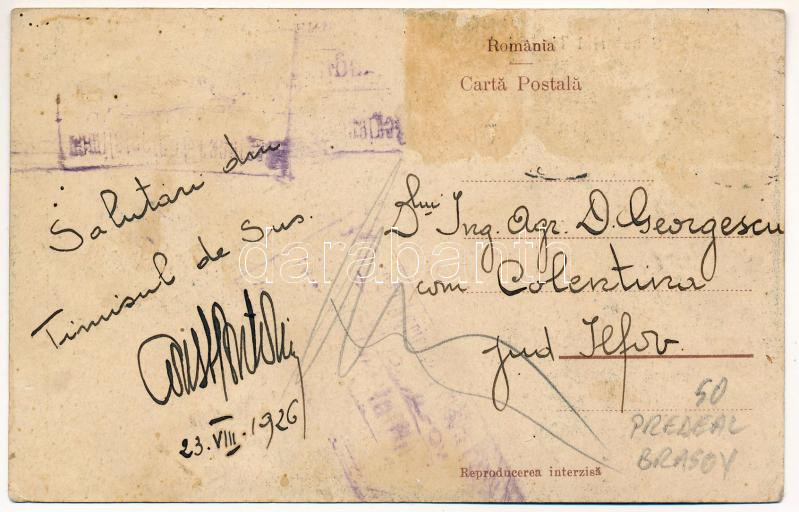 România
Cartă Postală
Salutari din
Timisul de Sus.
23.VIII.1926
Dlui Ing. Agr. D. Georgescu
com Colentina
jud Ilfov.
50
PREDEAL
BRASOV
Reproducerea interzisă
darabanth